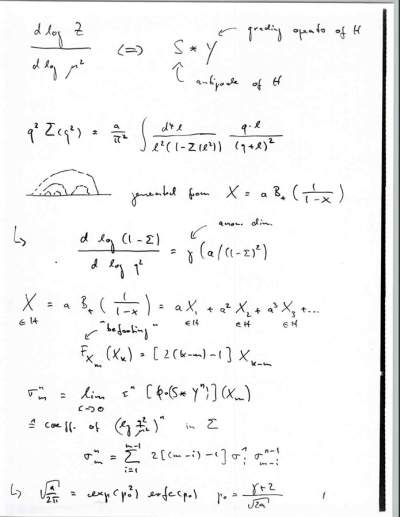 d log Z / d log μ² <=> S * Y grading operator of H
antipode of H
q² Σ(q²) = a/π² ∫ d⁴l / l²(1-Σ(l²)) q·l / (q+l)²
generated from X = a B₊ (1/(1-X))
anom. dim.
↳ d log (1-Σ) / d log q² = γ (a/(1-Σ)²)
X = a B₊ (1/(1-X)) = a X₁ + a² X₂ + a³ X₃ + ...
∈H ∈H ∈H ∈H
F_{X_m} (X_k) = [2(k-m)-1] X_{k-m}
σ_m^n = lim_{ε→0} ε^n [φ∘(S * Y^n)] (X_m)
≙ coeff. of (lg q²/μ²)^n in Σ
σ_m^n = Σ_{i=1}^{m-1} 2[(m-i)-1] σ_i^1 σ_{m-i}^{n-1}
↳ √a/2π = exp(p₀²) erfc(p₀) p₀ = (γ+2)/√2a